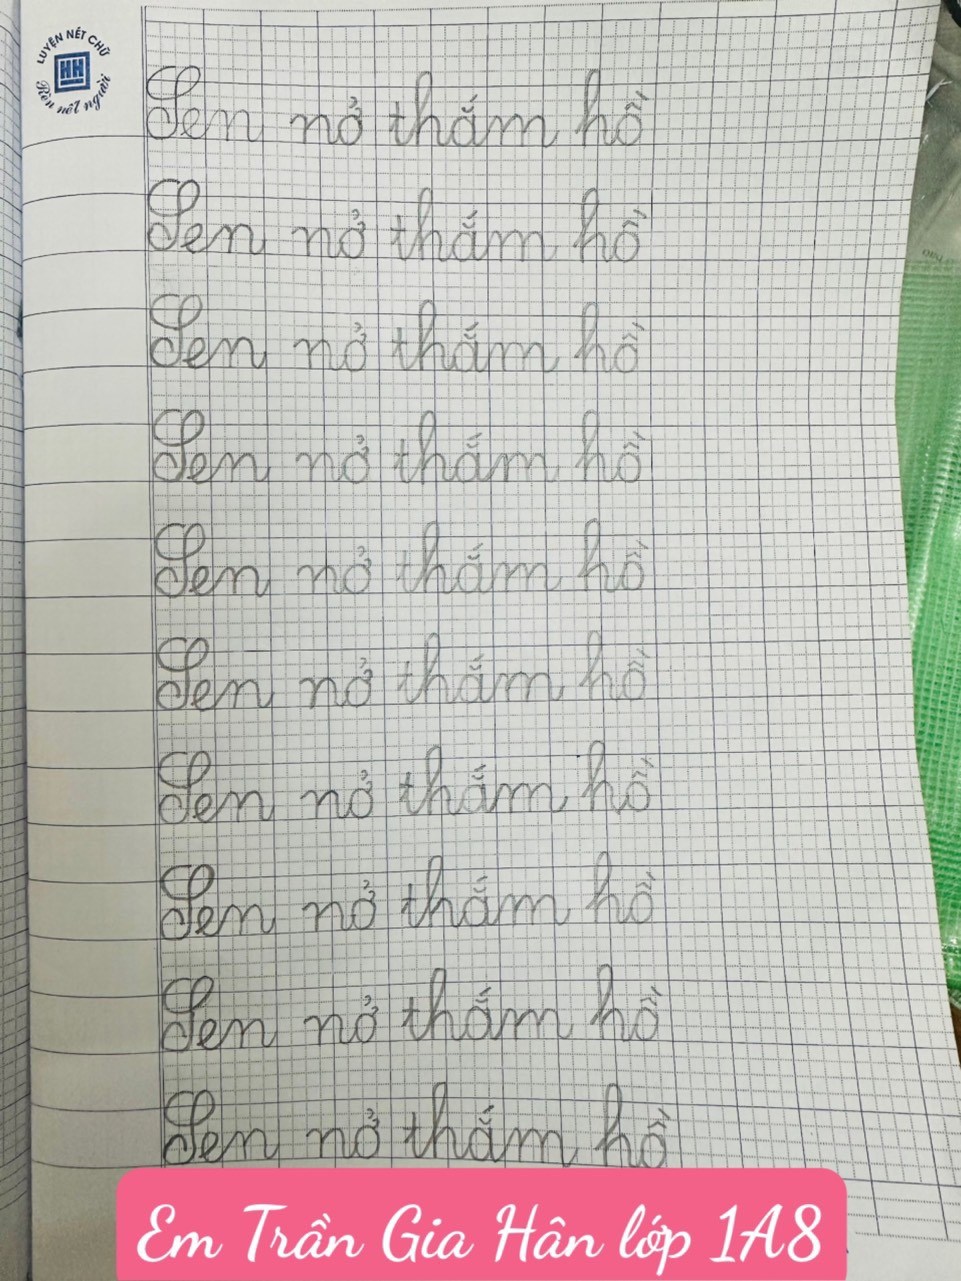 LUYỆN NÉT CHỮ
HH
Rèn nết người
Sen nở thắm hồ
Sen nở thắm hồ
Sen nở thắm hồ
Sen nở thắm hồ
Sen nở thắm hồ
Sen nở thắm hồ
Sen nở thắm hồ
Sen nở thắm hồ
Sen nở thắm hồ
Sen nở thắm hồ
Em Trần Gia Hân lớp 1A8